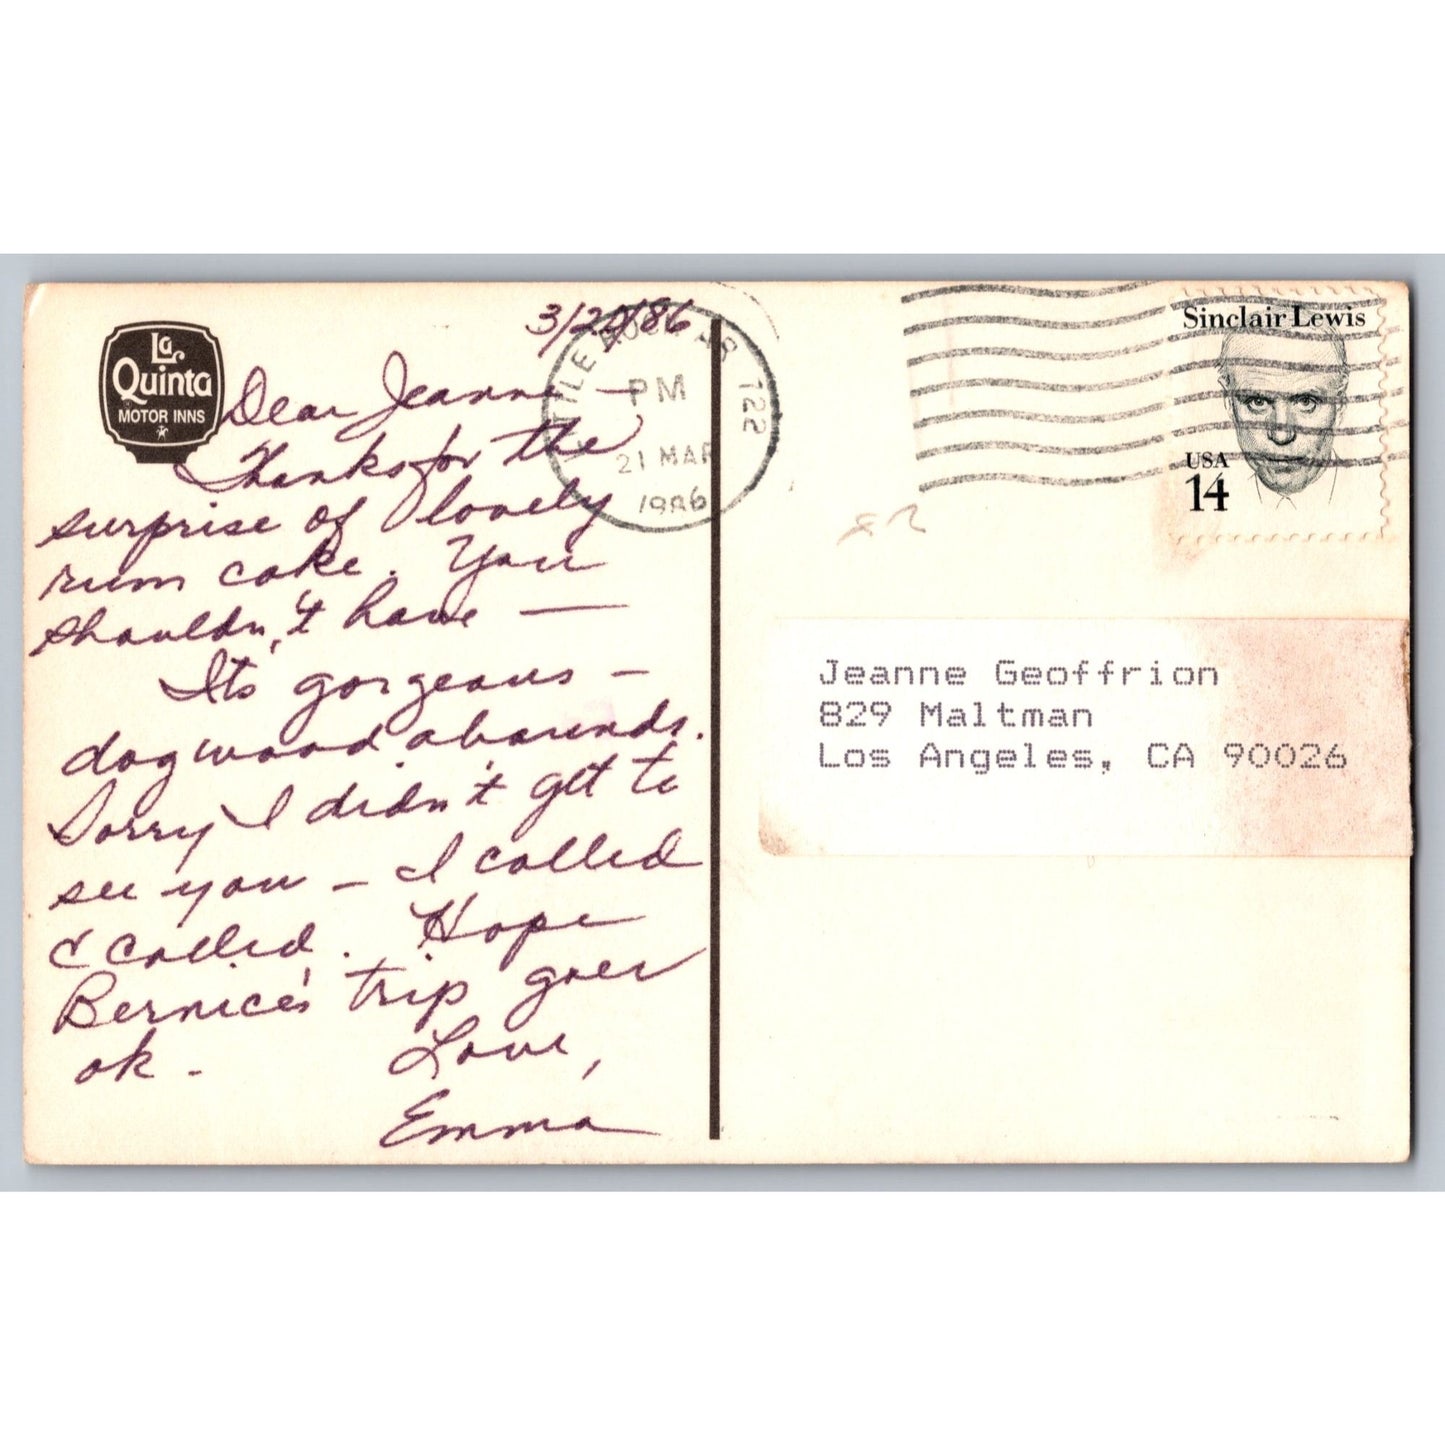 La
Quinta
MOTOR INNS
3/21/86
Dear Jeanne -
Thanks for the
surprise of lovely
rum cake. You
shouldn't have —
It's gorgeous -
dogwood abounds.
Sorry I didn't get to
see you - I called
& called. Hope
Bernice's trip goes
ok. Love,
Emma
LITTLE ROCK AR 722
PM
21 MAR
1986
Sinclair Lewis
USA
14
Jeanne Geoffrion
829 Maltman
Los Angeles, CA 90026